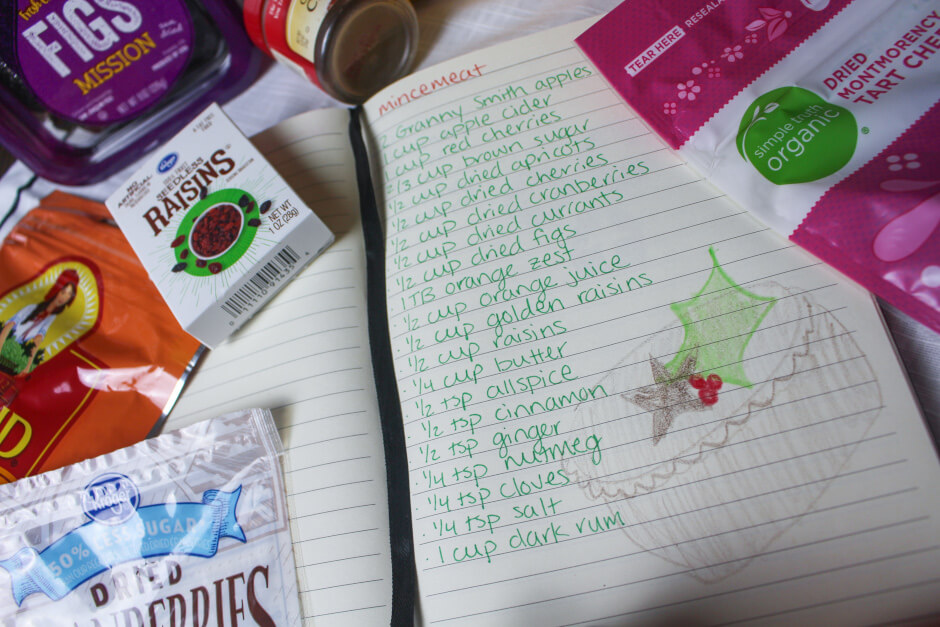 FIGS
MISSION
NO ARTIFICIAL
SEEDLESS
RAISINS
NET WT
1 OZ (28g)
50% LESS SUGAR
Kroger
DRIED
mincemeat
2 Granny Smith apples
1 cup apple cider
1 cup red cherries
2/3 cup brown sugar
1/2 cup dried apricots
1/2 cup dried cherries
1/2 cup dried cranberries
1/2 cup dried currants
1/2 cup dried figs
1 TB orange zest
1/2 cup orange juice
1/2 cup golden raisins
1/2 cup raisins
1/4 cup butter
1/2 tsp allspice
1/2 tsp cinnamon
1/2 tsp ginger
1/4 tsp nutmeg
1/4 tsp cloves
1/4 tsp salt
1 cup dark rum
TEAR HERE
simple truth
organic
DRIED
MONTMORENCY